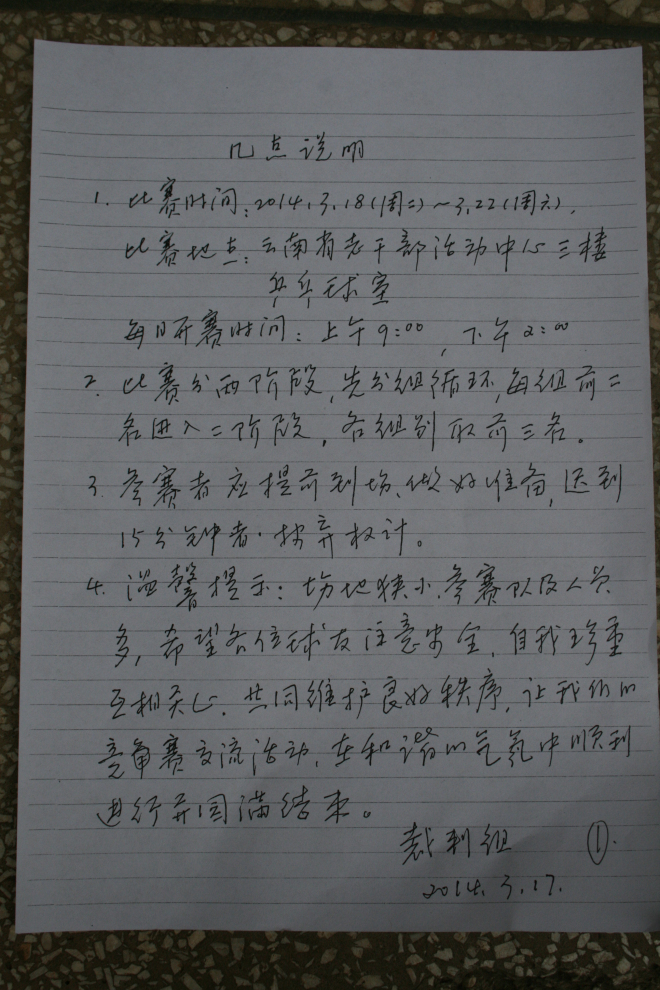 几点说明
1. 比赛时间:2014.3.18(周二)~3.22(周六).
比赛地点:云南省老干部活动中心三楼
乒乓球室
每日开赛时间:上午9:00,下午2:00
2. 比赛分两阶段,先分组循环,每组前二
名进入二阶段,各组别取前三名。
3. 参赛者应提前到场、做好准备,迟到
15分钟者·按弃权计。
4. 温馨提示:场地狭小.参赛队及人员
多,希望各位球友注意安全,自我珍重
互相关心.共同维护良好秩序,让我们的
竞争赛交流活动.在和谐的气氛中顺利
进行并圆满结束。
裁判组 ①.
2014.3.17.